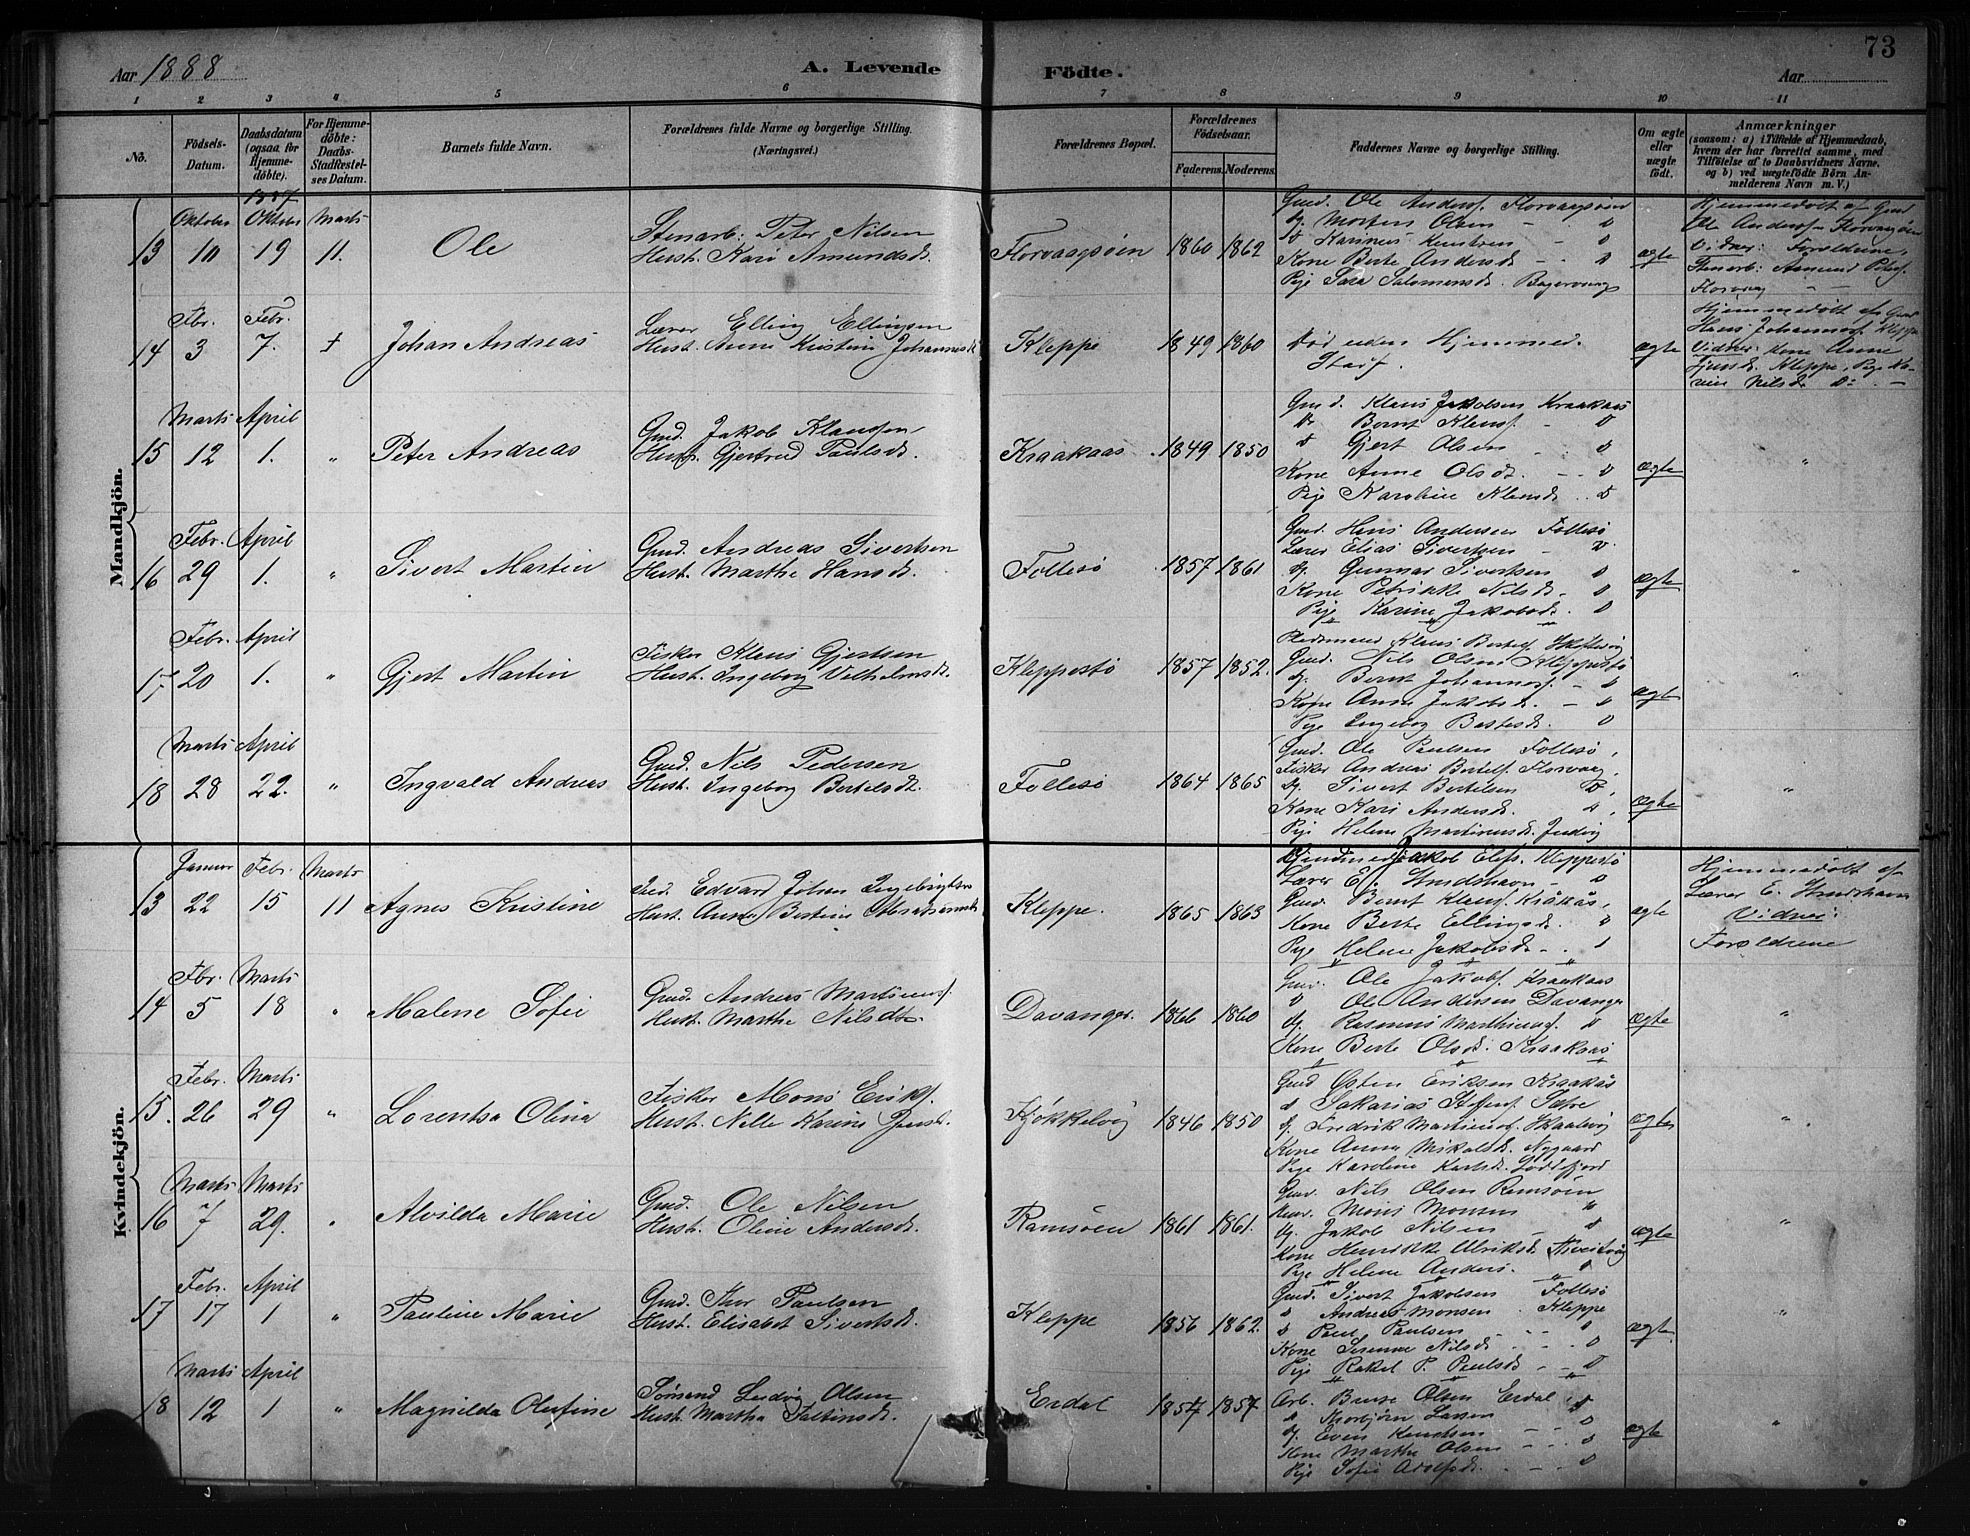 73
Aar 1888
A. Levende
Födte.
Aar
1 2 3 4 5 6 7 8 9 10 11
No.
Födsels-Datum.
Daabsdatum (ogsaa for Hjemmedöbte).
For Hjemmedöbte: Daabs-Stadfestelses Datum.
Barnets fulde Navn.
Forældrenes fulde Navne og borgerlige Stilling. (Næringsvei.)
Forældrenes Bopæl.
Forældrenes Födselsaar.
Faderens. Moderens.
Faddernes Navne og borgerlige Stilling.
Om ægte eller uægte födt.
Anmærkninger
(saasom: a) i Tilfælde af Hjemmedaab, hvem der har forrettet samme, med Tilföielse af to Daabsvidners Navne, og b) ved uægtefödte Börn Anmelderens Navn m. V.)
Mandkjön.
1887
Oktober Oktober Marts
13 10 19 11. Ole
Stenarb: Peter Nilsen
Hust. Kari Amundsd.
Florvaagøen 1860 1862
Gmd. Ole Anders. Florvaagøen
Morten Olsen
Kone Berte Andersd.
Pige Sara Salomonsd.
ægte
Hjemmedøbt af Gmd
Ole Anders. Florvaagøen
Vidner: Forældrene,
Stenarb: Amund Peters.
Florvaag
Fbr. Febr.
14 3 7. Johan Andreas
Lærer Elling Ellingsen
Hust. Anne Kristine Johannesd.
Kleppe 1849 1860
Død uden Hjemmed.
Stadf.
ægte
Hjemmedøbt af Gmd
Hans Johanness. Kleppe
Vidner: Kone Anne
Jensd. Kleppe, Pige Karine Nilsd. Do
Marts April
15 12 1. " Peter Andreas
Gmd. Jakob Klaussen
Hust. Gjertrud Paulsd.
Kraakaas 1849 1850
Gmd. Klaus Jakobsen Kraakaas
Gjert Olsen
Kone Anne Olsd.
Pige Karoline
ægte "
Febr. April
16 29 1. " Sivert Martin
Gmd. Andreas Sivertsen
Hust. Marthe Hansd.
Follesø 1857 1861
Gmd. Hans Andersen Follesø
Lærer Elias Sivertsen
Gunnar Sivertsen
Kone Petrikke Nilsd.
Pige Karine Jakobsd.
ægte "
Febr. April
17 20 1. " Gjert Martin
Fisker Klaus Gjertsen
Hust. Ingeborg Vilhelmsd.
Kleppestø 1857 1852.
Pladsmand Klaus Bertels.
Gmd. Nils Olsen Kleppestø
Bernt Johanness.
Kone Anna Jakobsd.
Pige Ingeborg Bertelsd.
ægte "
Marts April
18 28 22. " Ingvald Andreas
Gmd. Nils Pedersen
Hust. Ingeborg Bertelsd.
Follesø 1864 1865
Gmd. Ole Paulsen Follesø,
Fisker Andreas Bertels. Florvaag,
Sivert Bertelsen
Kone Kari Andersd.
Pige Helene Martinusd.
ægte "
Kvindekjön.
Januar Febr. Marts
13 22 15 11 Agnes Kristine
Gmd. Edvard Johan Ingebrigtsen
Hust. Anne Bertine
Kleppe. 1865 1863
Jakob Eliass. Kleppestø
Lærer E. Strudshavn
Gmd. Bernt Klaus. Kråkås,
Kone Berte Ellingsd.
Pige Helene Jakobsd.
ægte
Hjemmedøbt af
Lærer E. Strudshavn
Vidner:
Forældrene
Fbr. Marts
14 5 18 " Malene Sofie
Gmd. Andreas Martinus.
Hust. Marthe Nilsdt.
Davanger. 1866 1860
Gmd. Ole Jakobs. Kraakaas
Ole Andersen Davanger
Rasmus
Kone Berte Olsd. Kraakaas
ægte "
Febr. Marts
15. 26 29 " Lorentsa Olina
Fisker Mons Eriks.
Hust. Nelle Karine Jensd.
Kjøkkelvig 1846 1850
Gmd Østen Eriksen Kraakås
Sakarias
Fredrik Martinus.
Kone Anna Mikalsd. Nygaard
Pige Karoline
ægte "
Marts Marts
16 7 29. " Alvilda Marie
Gmd. Ole Nilsen
Hust. Oline Andersd.
Ramsøen 1861 1861.
Gmd. Nils Olsen Ramsøen
Mons Monsen
Jakob Nilsen
Kone Henrikke Ulriksd.
Pige Helene Anders.
ægte "
Febr. April
17 17 1 " Pauline Marie
Gmd. Thor Paulsen
Hust. Elisabet Sivertsd.
Kleppe 1856 1862.
Gmd. Sivert Jakobsen Follesø
Andreas Monsen Kleppe
Paul Paulsen
Kone Nilsd.
Pige Rakel P. Paulsd.
ægte "
Marts April
18 12 1 " Magnilda Olufine
Sømand Ludvig Olsen
Hust. Martha Faltinsd.
Erdal 1857 1857
Arb. Olsen Erdal
Thorbjørn Larsen
Even Knudsen
Kone Marthe Olsen
Pige Sofie
ægte "